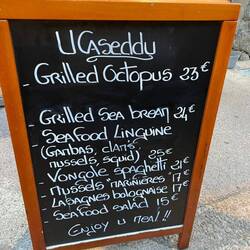 UCaseddu
- Grilled Octopus 23€
- Grilled Sea bream 24€
- Seafood Linguine
(Gambas, clams,
mussels, squid) 25€
- Vongole spaghetti 21€
- Mussels marinières 17€
- Lasagnes bolognaise 17€
- Seafood salad 15€
Enjoy u meal!!